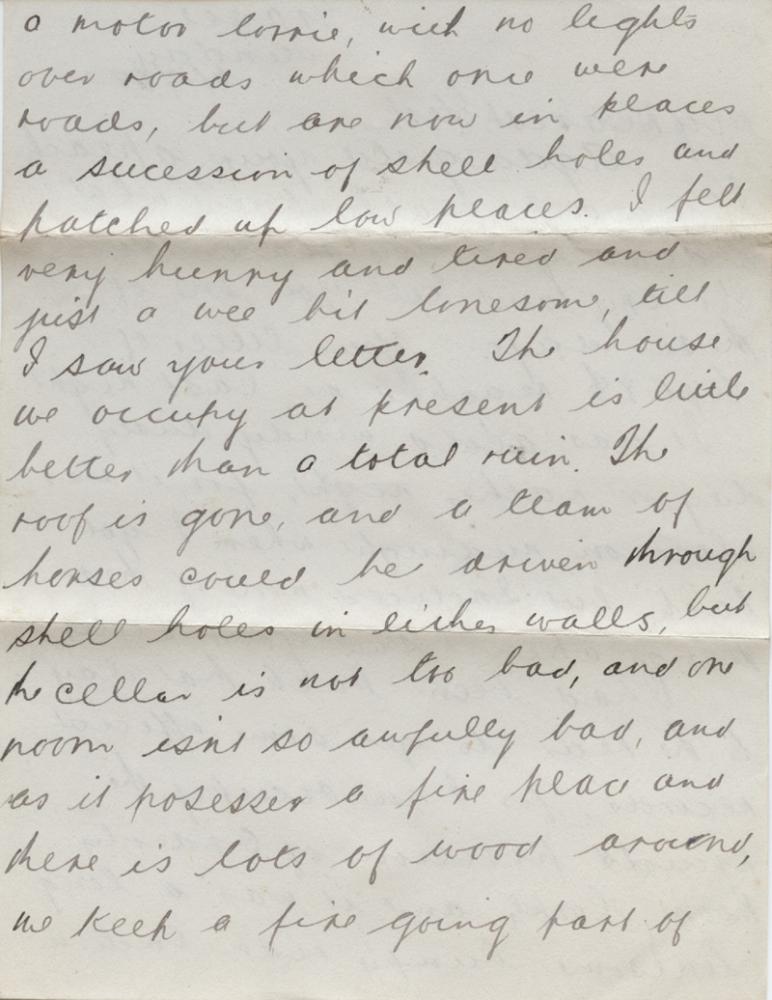 a motor lorrie, with no lights
over roads which once were
roads, but are now in places
a sucession of shell holes and
patched up low places. I felt
very hungry and tired and
just a wee bit lonesome, till
I saw your letter. The house
we occupy at present is little
better than a total ruin. The
roof is gone, and a team of
horses could be driven through
shell holes in either walls, but
the cellar is not too bad, and one
room isnt so awfully bad, and
as it posesses a fire place and
there is lots of wood around,
we keep a fire going part of